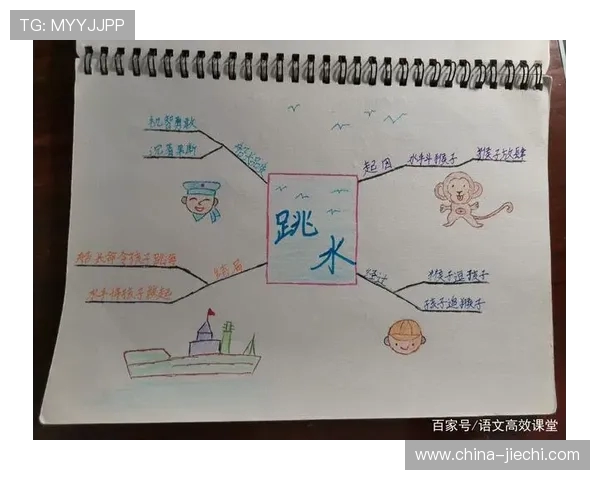 TG: MYYJJPP
机智勇敢
沉着果断
船长品质
起因
水手斗猴子
猴子放肆
跳水
船长命令孩子跳海
水手将孩子救起
结局
经过
猴子逗孩子
孩子追猴子
百家号/语文高效课堂
www.china-jiechi.com